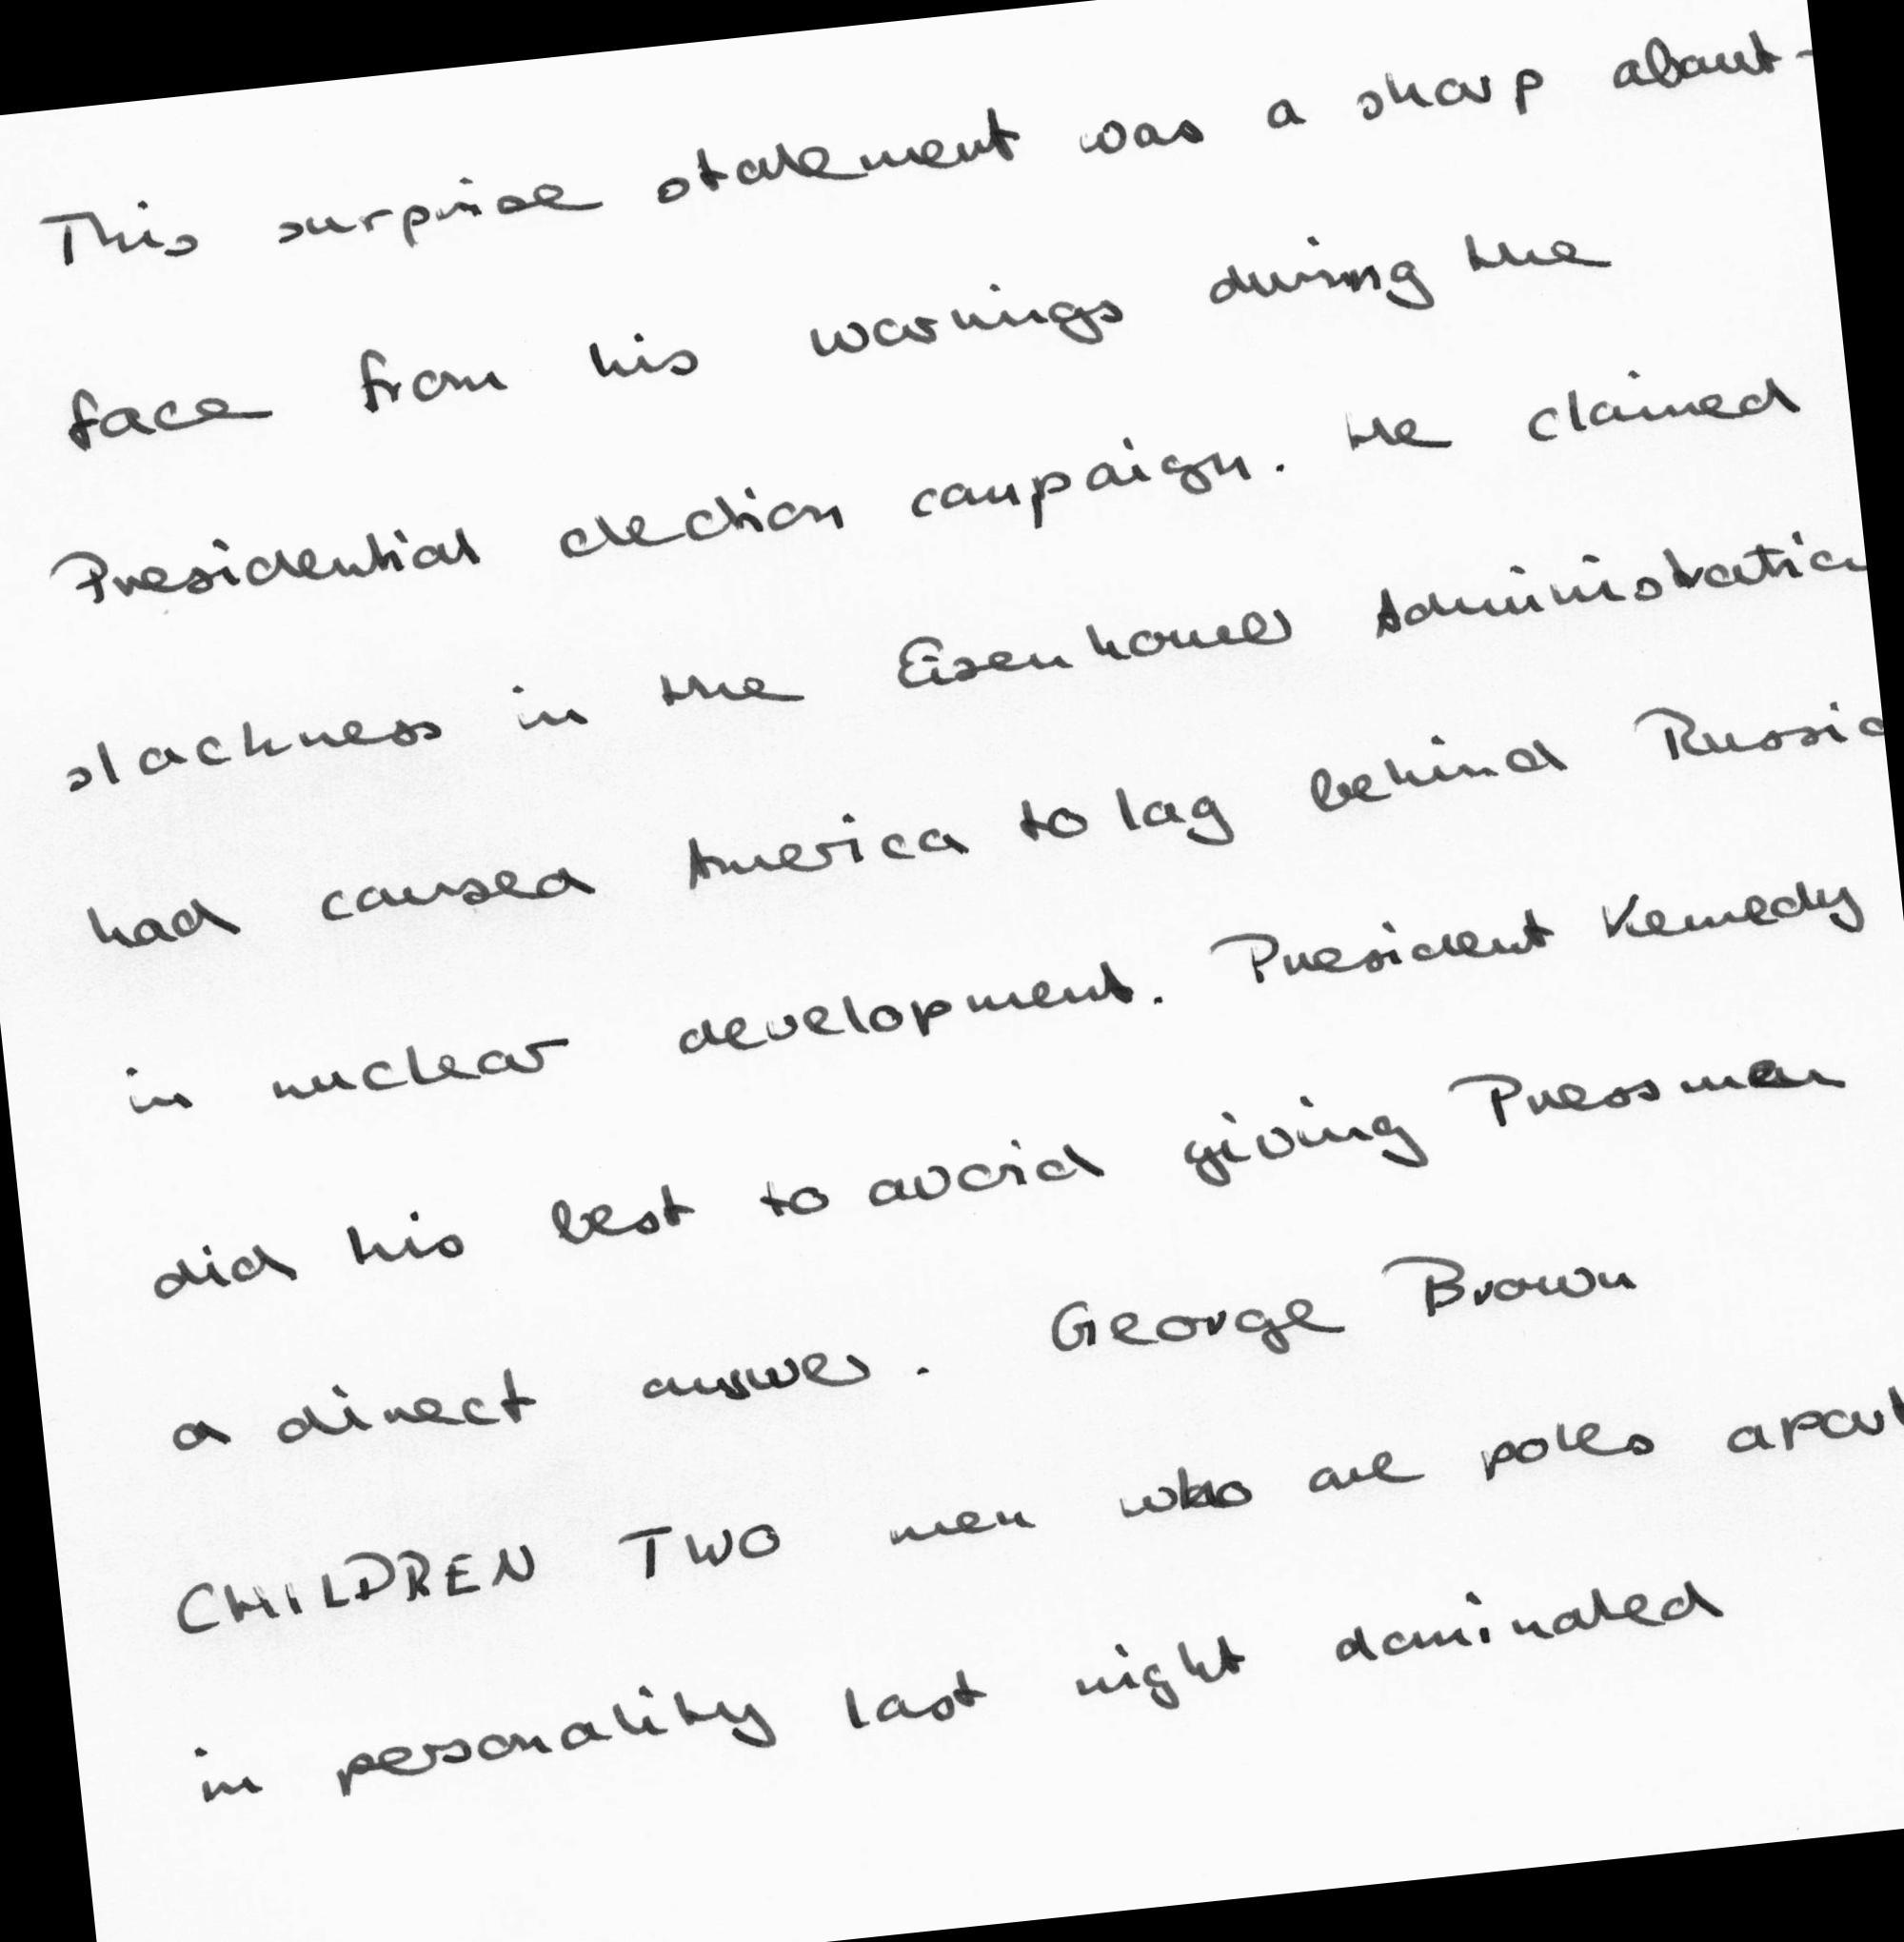 This surprise statement was a sharp about-
face from his warnings during the
Presidential election campaign. He claimed
slackness in the Eisenhower Administratio
had caused America to lag behind Russia
in nuclear development. President Kennedy
did his best to avoid giving Pressmen
a direct answer. George Brown
CHILDREN TWO men who are poles apart
in personality last night dominated